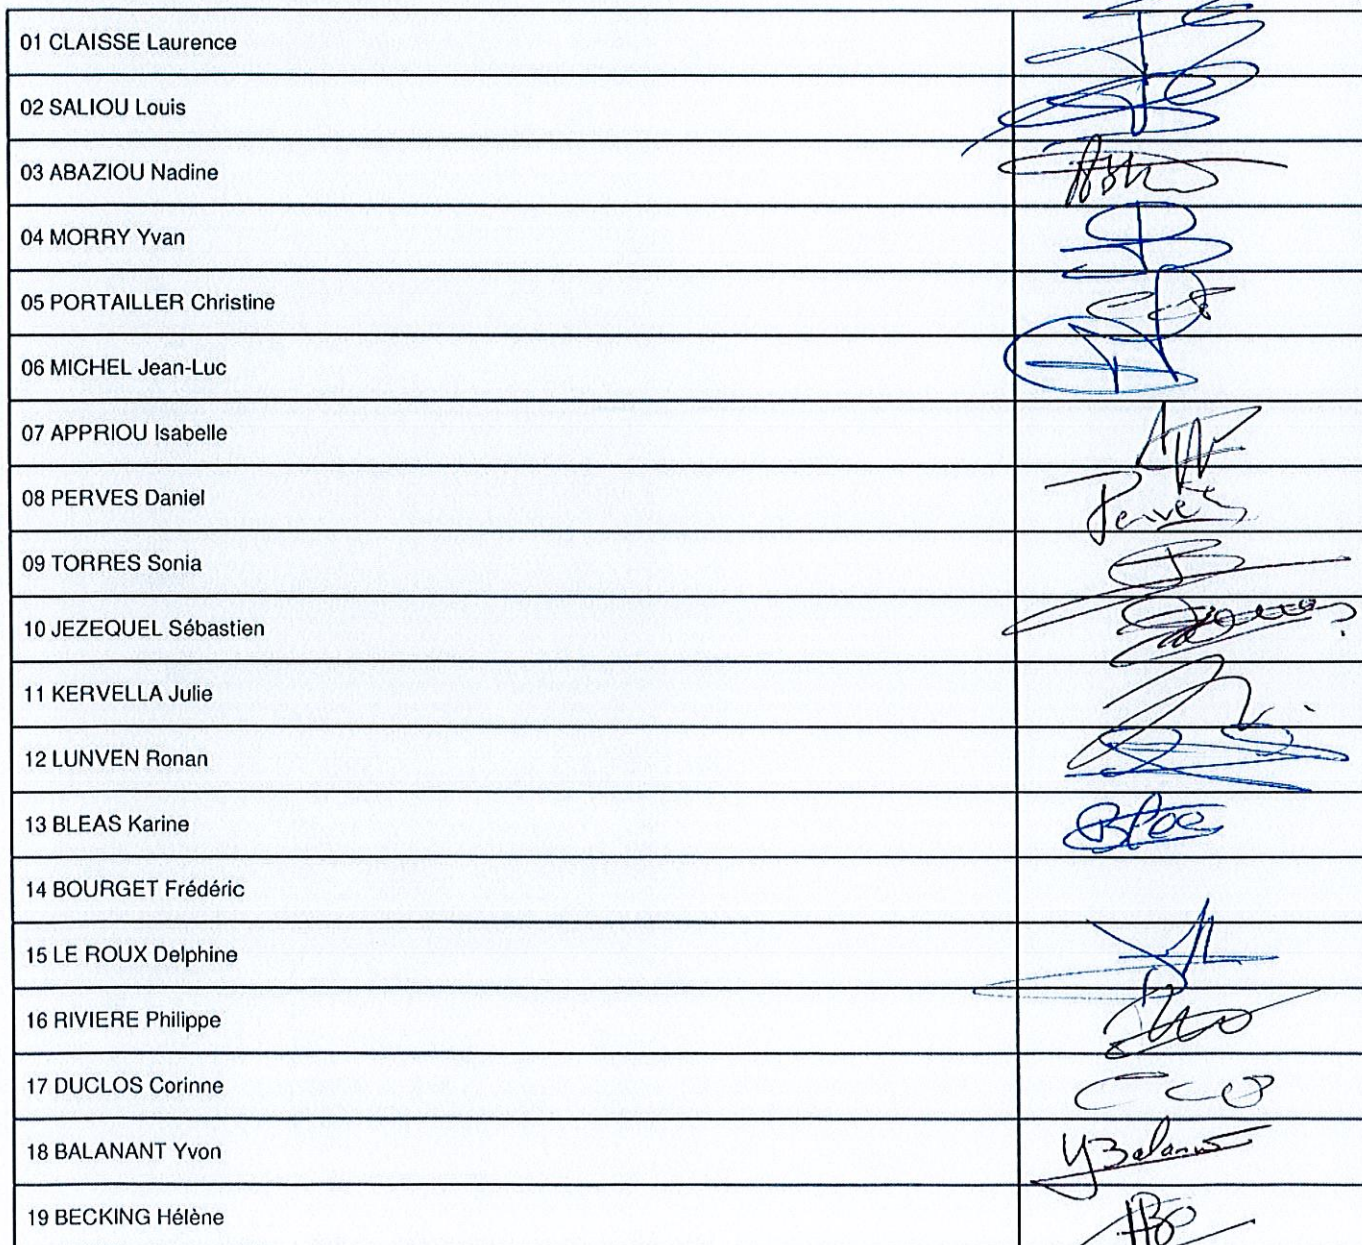 01 CLAISSE Laurence
02 SALIOU Louis
03 ABAZIOU Nadine
04 MORRY Yvan
05 PORTAILLER Christine
06 MICHEL Jean-Luc
07 APPRIOU Isabelle
08 PERVES Daniel Perves
09 TORRES Sonia
10 JEZEQUEL Sébastien
11 KERVELLA Julie
12 LUNVEN Ronan
13 BLEAS Karine
14 BOURGET Frédéric
15 LE ROUX Delphine
16 RIVIERE Philippe
17 DUCLOS Corinne
18 BALANANT Yvon YBalanant
19 BECKING Hélène